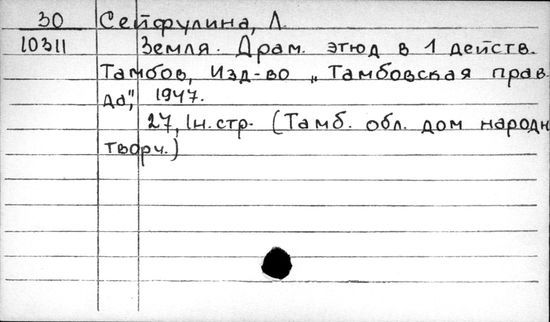 30 Сейфулина, Л.
10311 Земля. Драм. этюд в 1 действ.
Тамбов, Изд-во „Тамбовская прав
да", 1947.
27, 1н.стр. (Тамб. обл. дом народн
творч.)